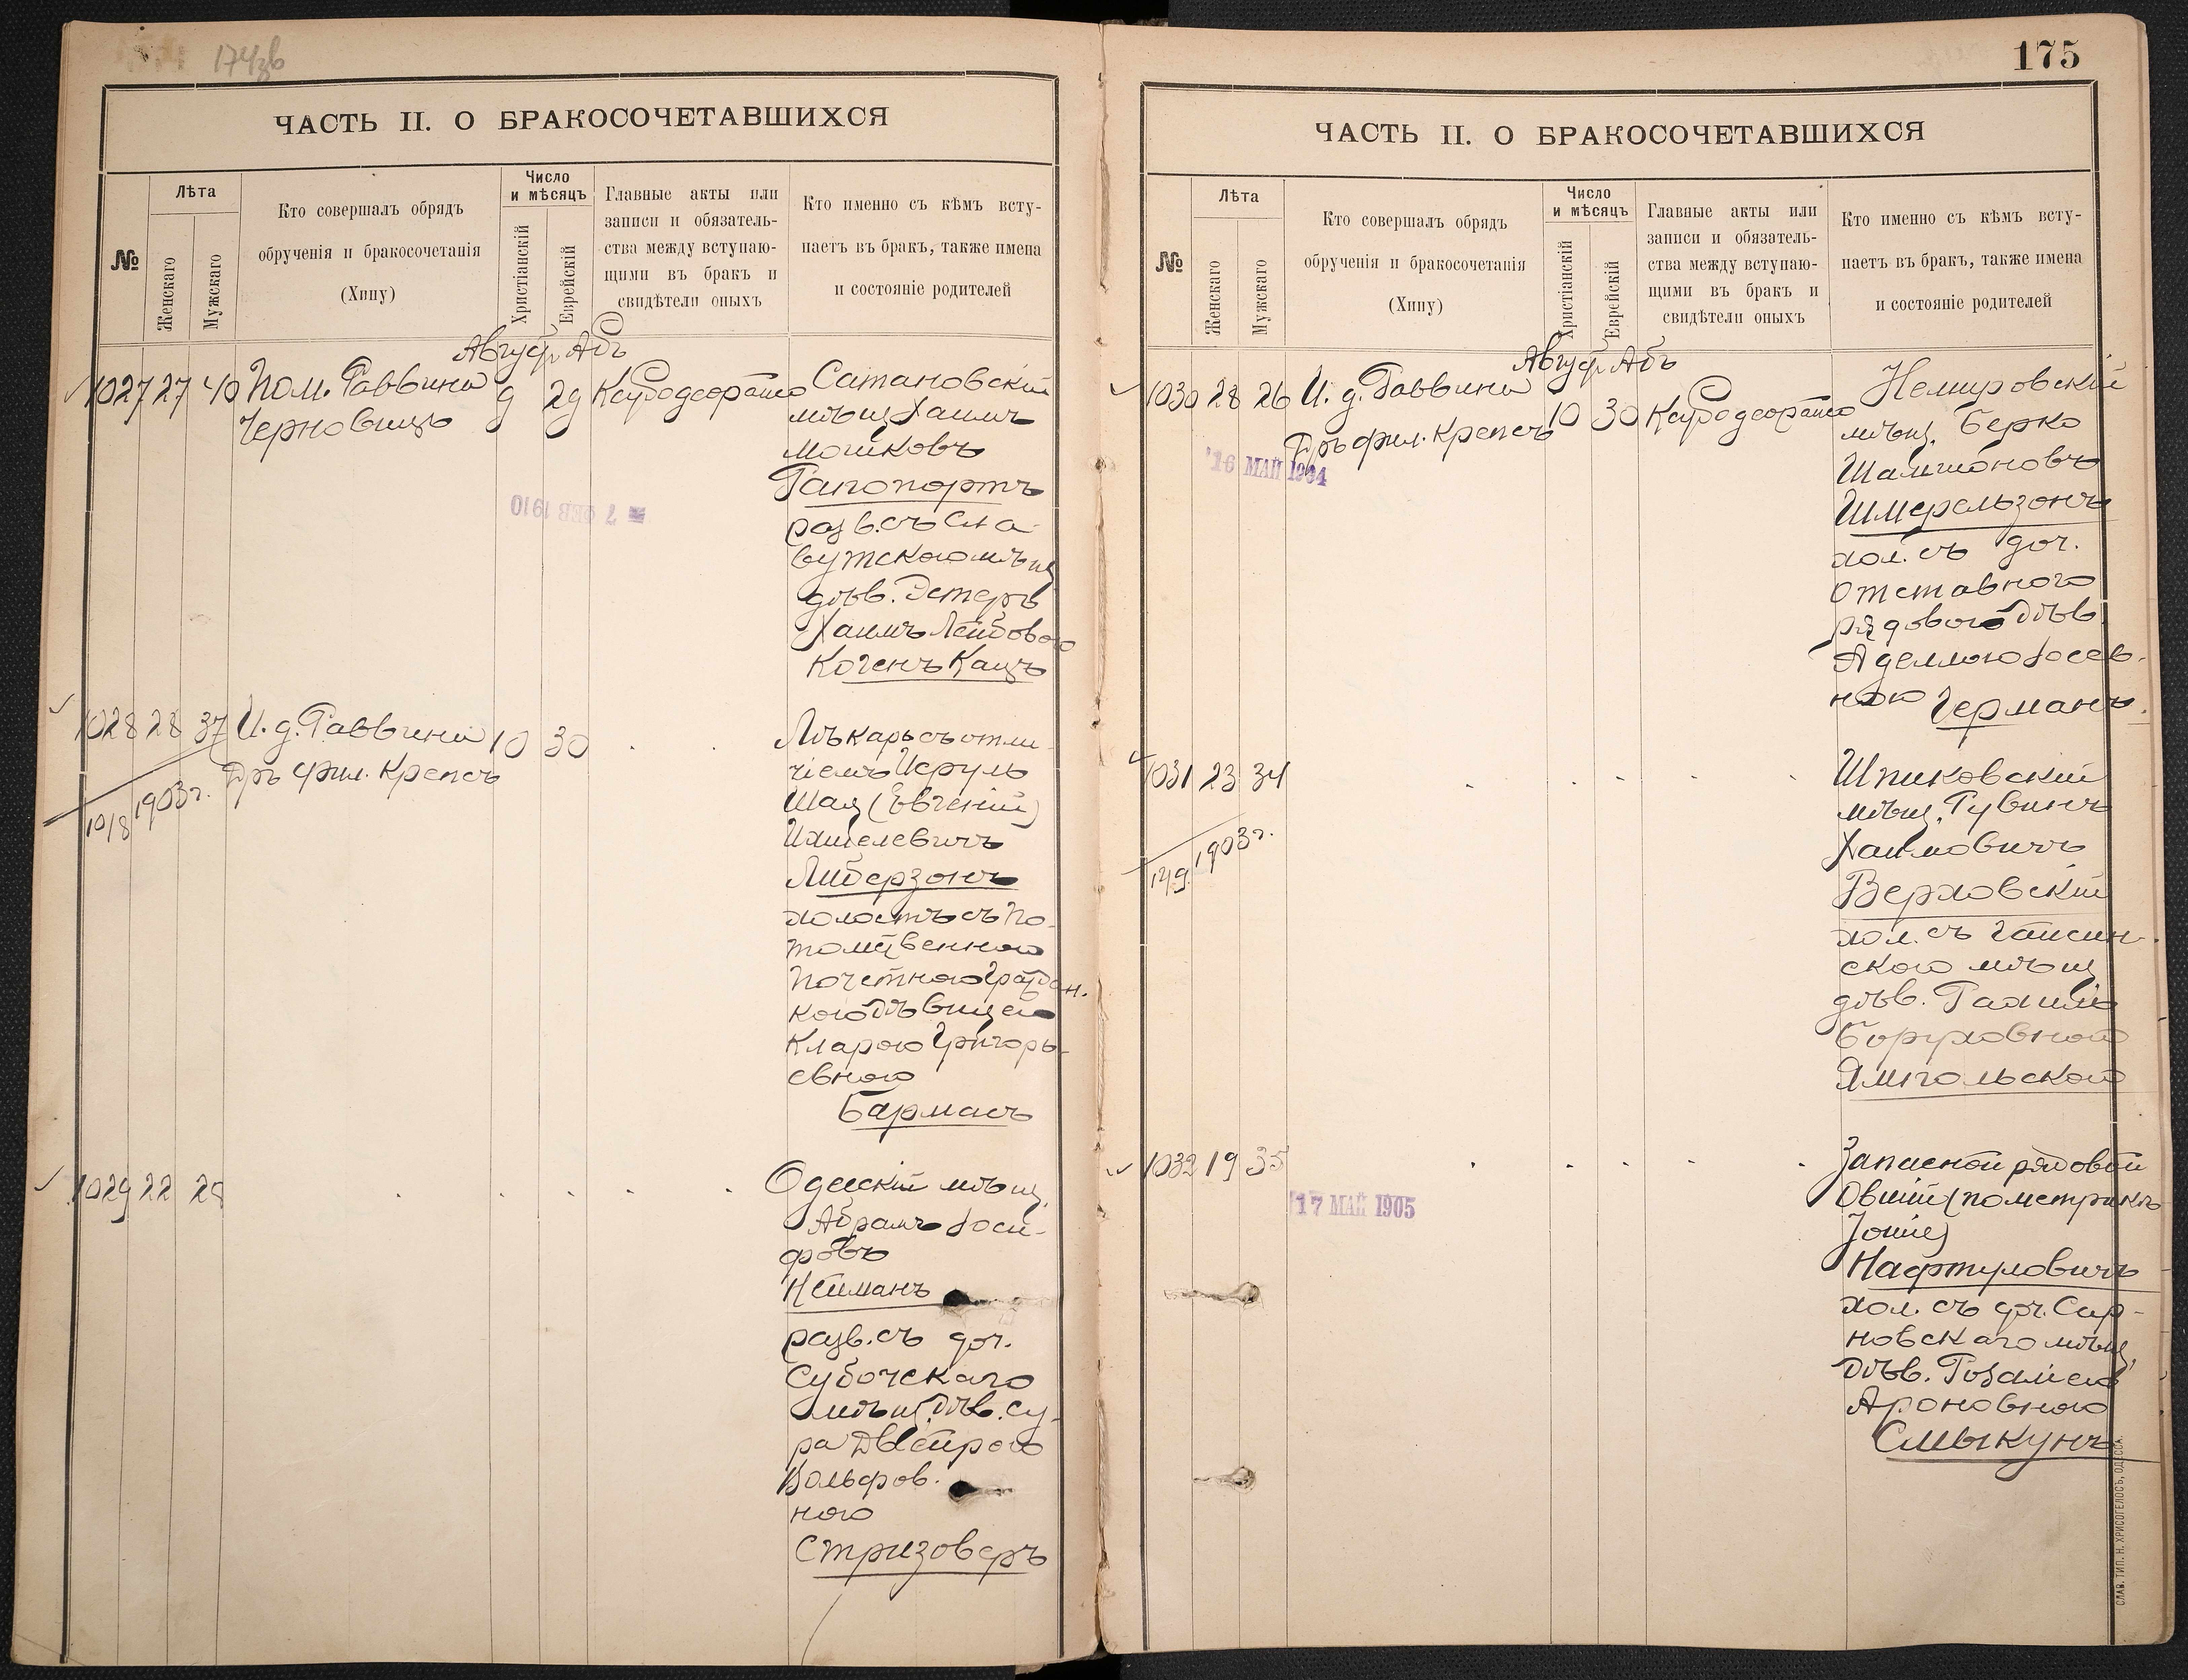 174зв
ЧАСТЬ II. О БРАКОСОЧЕТАВШИХСЯ
№
Лѣта
Женскаго
Мужскаго
Кто совершалъ обрядъ
обрученія и бракосочетанія
(Хипу)
Число
и мѣсяцъ
Христіанскій
Еврейскій
Главные акты или
записи и обязатель-
ства между вступаю-
щими въ бракъ и
свидѣтели оныхъ
Кто именно съ кѣмъ всту-
паетъ въ бракъ, также имена
и состояніе родителей
Август Абъ
1027 27 40 Пом. Раввина 9 29
Черновицъ
Сатановскій
мѣщ Хаимъ
Мошковъ
Рапопортъ
разв. съ Сла
вутскою мѣщ
дѣв. Эстеръ
Хаимъ Лейбовою
Когенъ Кацъ
7 ФЕВ 1910
1028 28 37 И. д. Раввина 10 30
Дръ фил. Крепсъ
10/8 1903 г.
Лѣкарь съ отли
чіемъ Исруль
Шая (Евгеній)
Ихилевичъ
Либерзонъ
холостъ съ По-
томственною
Почетною Граждан.
кою Дѣвицею
Кларою Григорь-
евною
Барманъ
1029 22 28
Одесскій мѣщ.
Абрамъ Іоси-
фовъ
Нейманъ
разв. съ доч.
Субочскаго
мѣщ. Дѣв. Су-
ра Двейрою
Вольфов.
ною
Стризоверъ
175
ЧАСТЬ II. О БРАКОСОЧЕТАВШИХСЯ
№
Лѣта
Женскаго
Мужскаго
Кто совершалъ обрядъ
обрученія и бракосочетанія
(Хипу)
Число
и мѣсяцъ
Христіанскій
Еврейскій
Главные акты или
записи и обязатель-
ства между вступаю-
щими въ бракъ и
свидѣтели оныхъ
Кто именно съ кѣмъ всту-
паетъ въ бракъ, также имена
и состояніе родителей
Август Абъ
1030 28 26 И. д. Раввина 10 30
Дръ фил. Крепсъ
16 МАЙ 1904
Немировскій
мѣщ. Берко
Шамшоновъ
Шмерельзонъ
хол. съ доч.
Отставного
рядового Дѣв.
Аделлою Іосев-
ною Германъ.
1031 23 34
1903 г.
Шпиковскій
мѣщ. Рувинъ
Хаимовичъ
Верховскій
хол. съ Гайсин-
скою мѣщ
дѣв. Рахилью
Боруховной
Ямпольской
1032 19 35
17 МАЙ 1905
Запасной рядовой
Овшій (по метрикѣ
Нафтуловичъ
хол. съ доч. Сар-
новскаго мѣщ.
Дѣв. Розаліею
Ароновною
Смыкунъ
СЛАВ. ТИП. Н. ХРИСОГЕЛОСЪ, ОДЕССА.